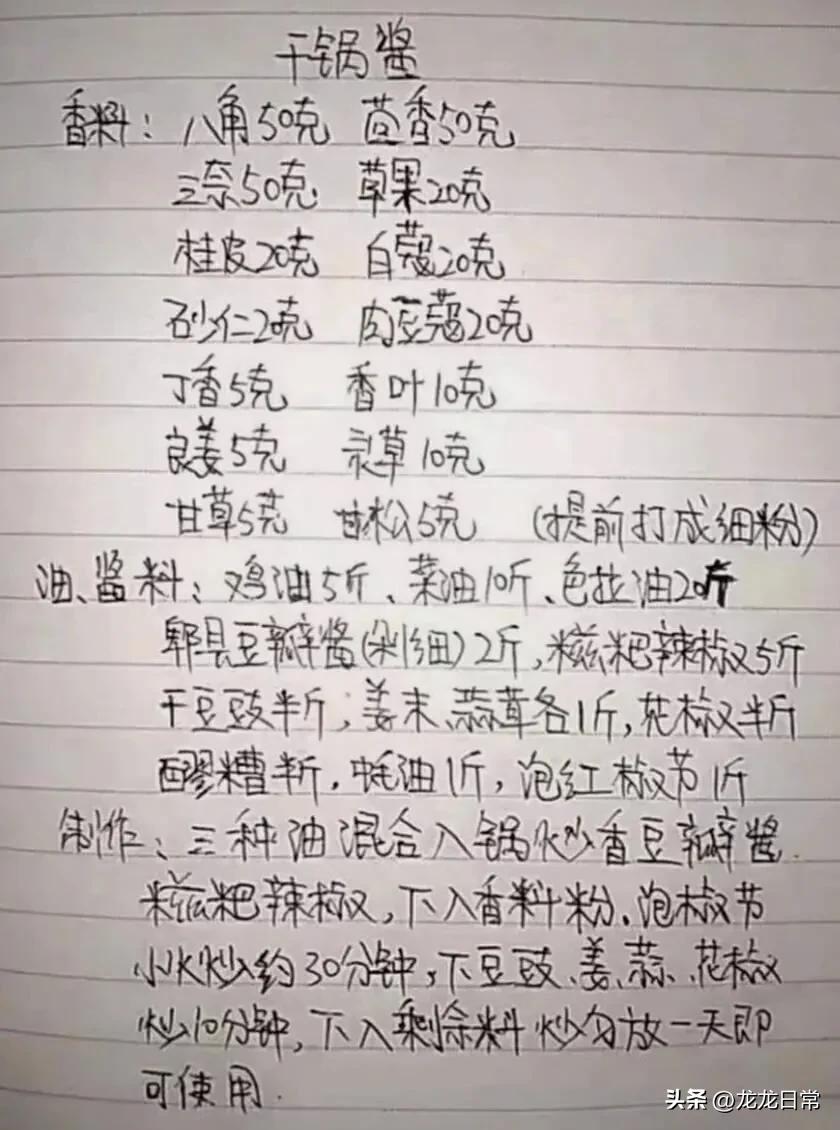 干锅酱
香料: 八角50克 茴香50克
三奈50克 草果20克
桂皮20克 白蔻20克
砂仁20克 肉豆蔻20克
丁香5克 香叶10克
良姜5克 灵草10克
甘草5克 甘松5克 (提前打成细粉)
油、酱料: 鸡油5斤、菜油10斤、色拉油20斤
郫县豆瓣酱(剁细)2斤,糍粑辣椒5斤
干豆豉半斤,姜末、蒜茸各1斤,花椒半斤
醪糟半斤,蚝油1斤,泡红椒节1斤
制作: 三种油混合入锅炒香豆瓣酱.
糍粑辣椒,下入香料粉、泡椒节
小火炒约30分钟,下豆豉、姜、蒜、花椒
炒10分钟,下入剩余料炒匀放一天即
可使用.
头条 @龙龙日常